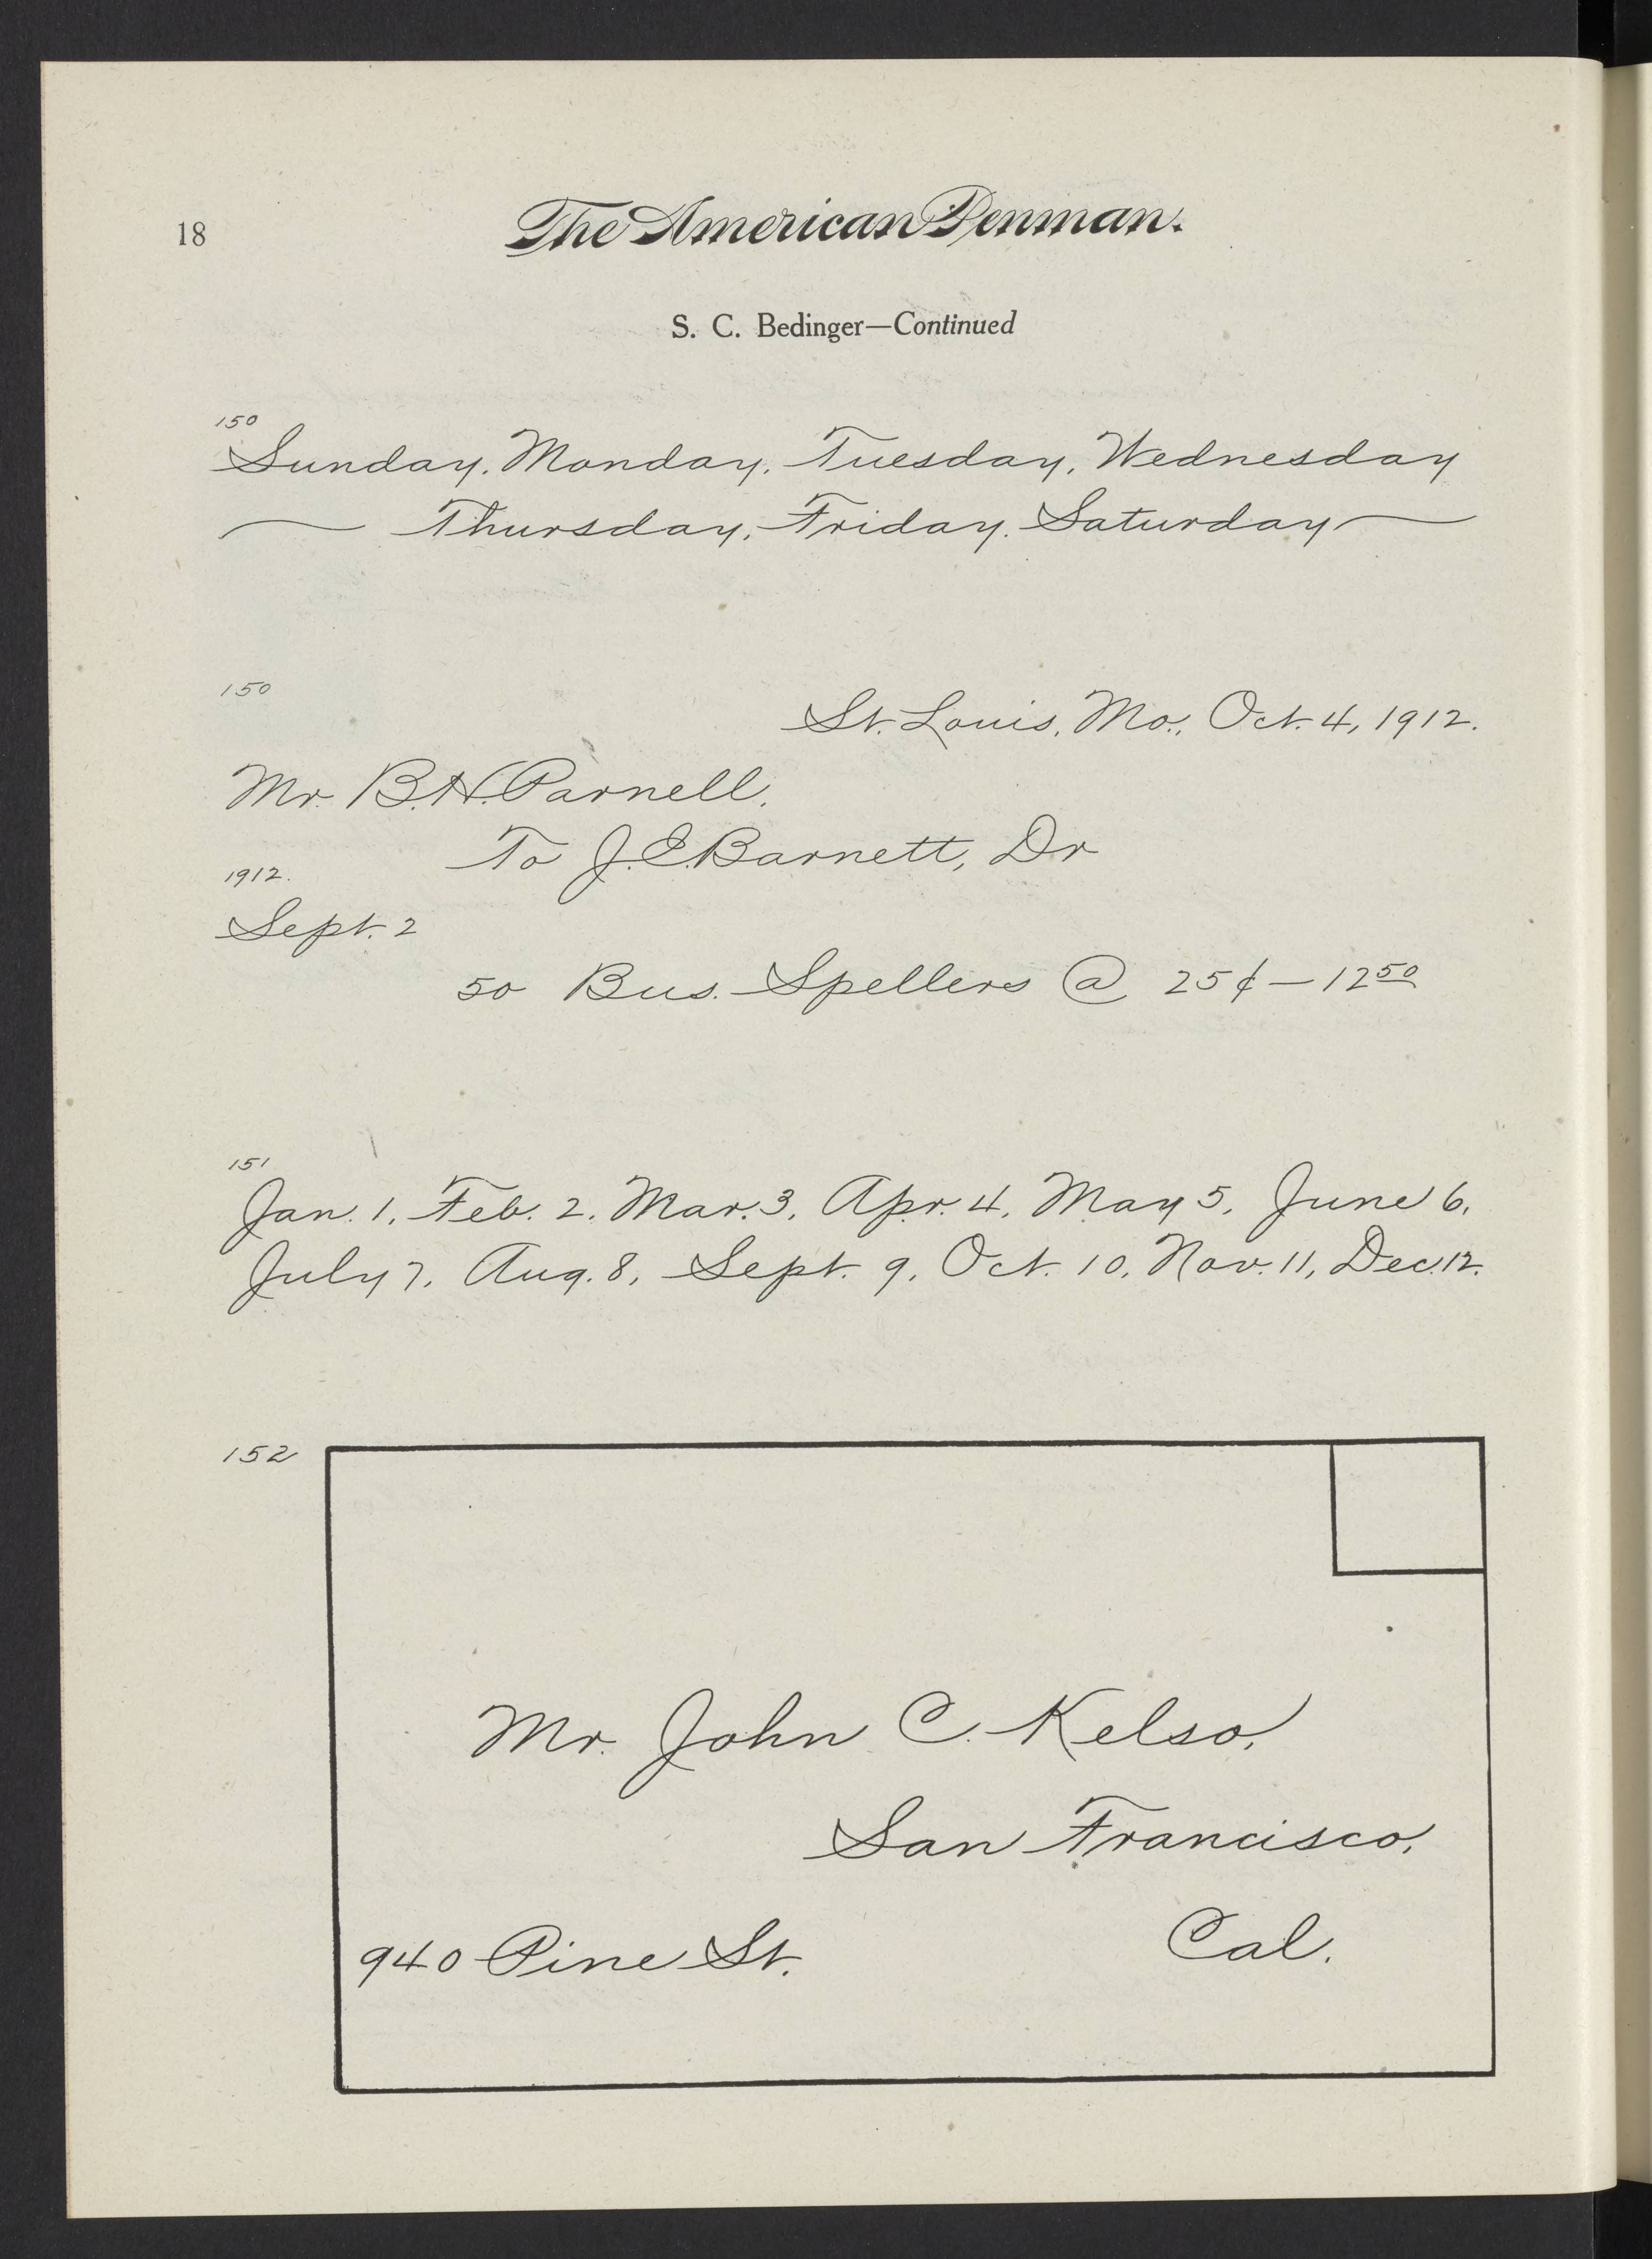 18
The American Penman.
S. C. Bedinger—Continued
150
Sunday, Monday, Tuesday, Wednesday
Thursday, Friday, Saturday
150
St. Louis, Mo., Oct. 4, 1912.
Mr. B. H. Parnell,
To J. E. Barnett, Dr
1912.
Sept. 2
50 Bus. Spellers @ 25¢ — 12 50
151
Jan. 1, Feb. 2, Mar. 3, Apr. 4, May 5, June 6,
July 7, Aug. 8, Sept. 9, Oct. 10, Nov. 11, Dec. 12.
152
Mr. John C. Kelso,
San Francisco,
940 Pine St. Cal.